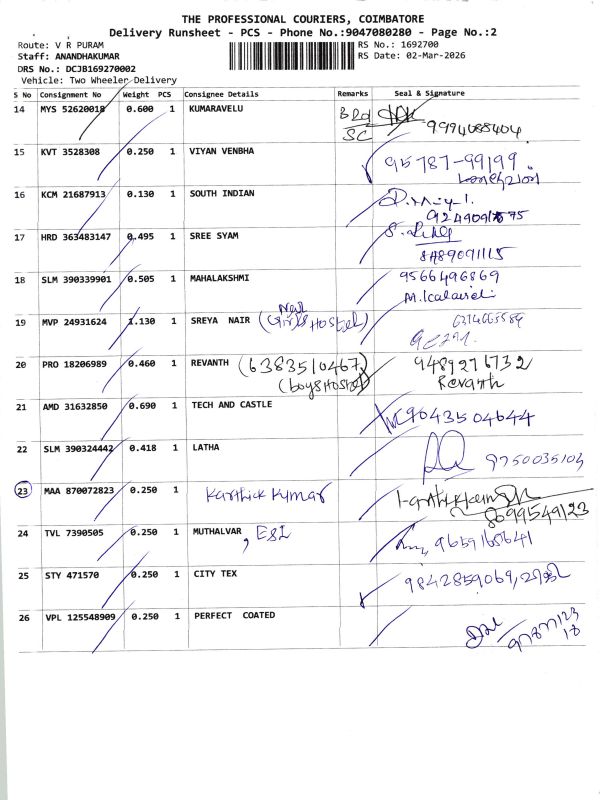 THE PROFESSIONAL COURIERS, COIMBATORE
Delivery Runsheet - PCS - Phone No.:9047080280 - Page No.:2
Route: V R PURAM
RS No.: 1692700
Staff: ANANDHAKUMAR
RS Date: 02-Mar-2026
DRS No.: DCJB169270002
Vehicle: Two Wheeler Delivery
S No Consignment No Weight PCS Consignee Details Remarks Seal & Signature
14 MYS 52620018 0.600 1 KUMARAVELU 9994088404
SC
15 KVT 3528308 0.250 1 VIYAN VENBHA 95787-99199
16 KCM 21687913 0.130 1 SOUTH INDIAN
17 HRD 363483147 0.495 1 SREE SYAM
8489091115
18 SLM 390339901 0.505 1 MAHALAKSHMI 9566496869
M.Kalaiselvi
19 MVP 24931624 1.130 1 SREYA NAIR (Girls Hostel) 6374665584
20 PRO 18206989 0.460 1 REVANTH (6383510467) 9489276732
(boys Hostel) Revanth
21 AMD 31632850 0.690 1 TECH AND CASTLE 9043504644
22 SLM 390324442 0.418 1 LATHA 9750035103
23 MAA 870072823 0.250 1 Karthick Kumar
8099549123
24 TVL 7390505 0.250 1 MUTHALVAR, ESI 9659165641
25 STY 471570 0.250 1 CITY TEX 9842859069,
26 VPL 125548909 0.250 1 PERFECT COATED 97877123
18